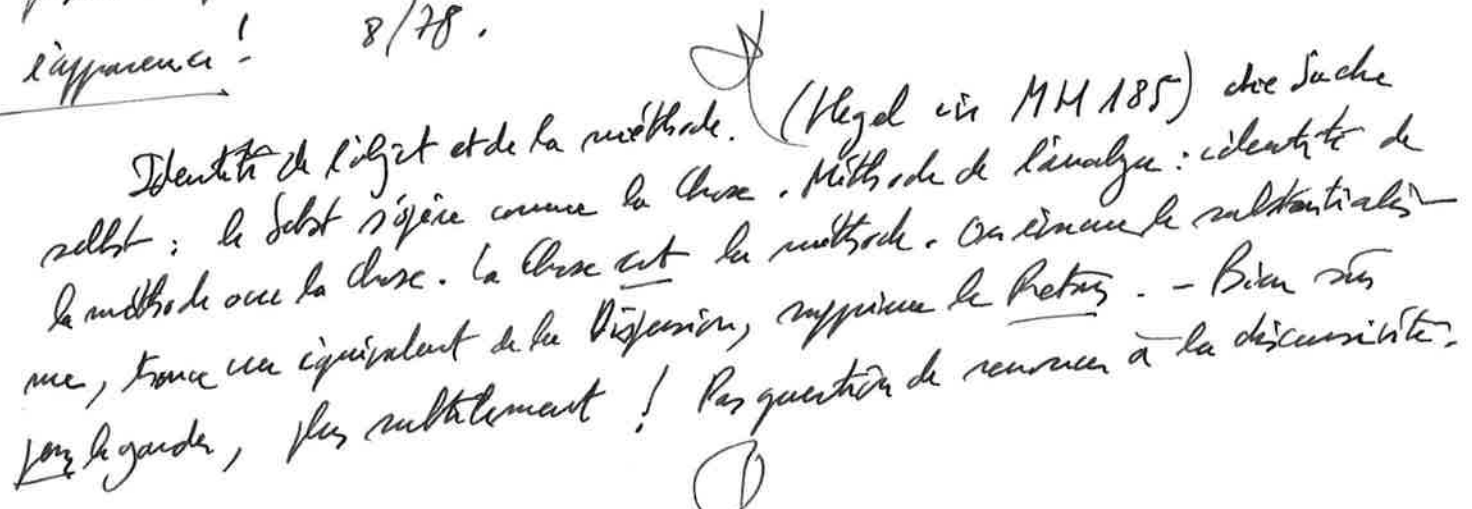 l'apparence ! 8/78.
Identité de l'objet et de la méthode. (Hegel in MM 185) die Sache
selbst : le Selbst s'opère comme la Chose. Méthode de l'analyse : identité de
la méthode avec la chose. La Chose est la méthode. On énonce le substantialis-
me, trouve un équivalent de la Dispersion, supprime le Retour. - Bien sûr
pour le garder, plus subtilement ! Pas question de renoncer à la discursivité.